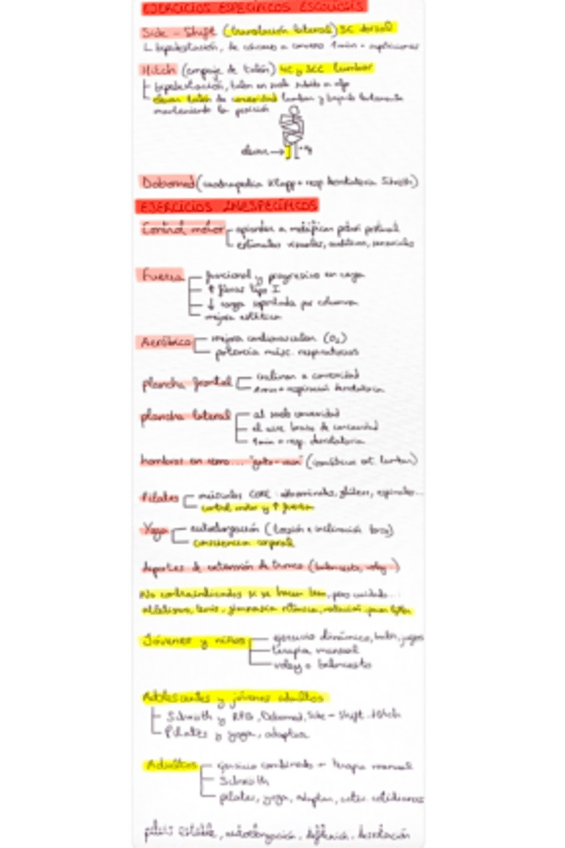 EJERCICIOS ESPECÍFICOS ESCOLIOSIS
Side - Shift (translación lateral) SC dorsal
bipedestación, de cóncavo a convexo 1min + repeticiones
Hitch (empuje de talón) SC y SCC lumbar
bipedestación, talón en suelo subido a algo
elevar talón de convexidad lumbar y bajarlo lentamente
manteniendo la posición
elevar →
Dobomed (cuadrupedia Klapp + resp. desrotatoria Schroth)
EJERCICIOS INESPECÍFICOS
Control motor
aprender a modificar patrón postural
estímulos visuales, auditivos, sensoriales
Fuerza
funcional y progresivo en carga
↑ fibras tipo I
↓ carga soportada por columna
mejora estética
Aeróbico
mejora cardiovascular (O₂)
potencia músc. respiratorios
plancha frontal
inclinar a convexidad
1min + respiración desrotatoria
plancha lateral
al suelo convexidad
el aire brazo de concavidad
1min + resp. desrotatoria
hombros en ... "gato-" (lumbar)
Pilates
músculos CORE: abdominales, glúteos, espinales...
control motor y ↑ fuerza
Yoga
autoelongación (torsión e inclinación)
consciencia corporal
deportes de extensión de tronco (baloncesto, voley)
No contraindicados si se hacen bien, pero cuidado...
atletismo, tenis, gimnasia rítmica, natación,
Jóvenes y niños
ejercicio dinámico, balón, juegos
terapia manual
voley o baloncesto
Adolescentes y jóvenes adultos
Schroth y RPG, Dobomed, Side - Shift, Hitch
Pilates y yoga, adaptar
Adultos
ejercicio combinado + terapia manual
Schroth
pilates, yoga, adaptar, cotidianas
pelvis estable, autoelongación, deflexión, desrotación